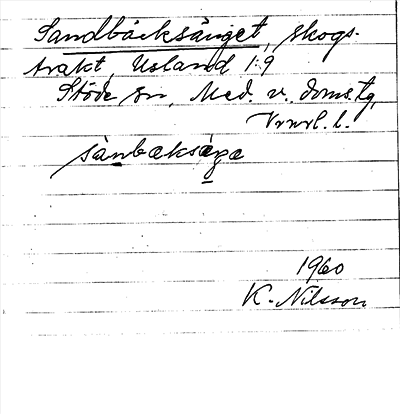 Sandbäcksänget, skogs-
trakt, Usland 1:9
Stöde sn, Med. v. doms.tg,
Vrnrl. l.
sànbæksæ̀ŋa
1960
K. Nilsson